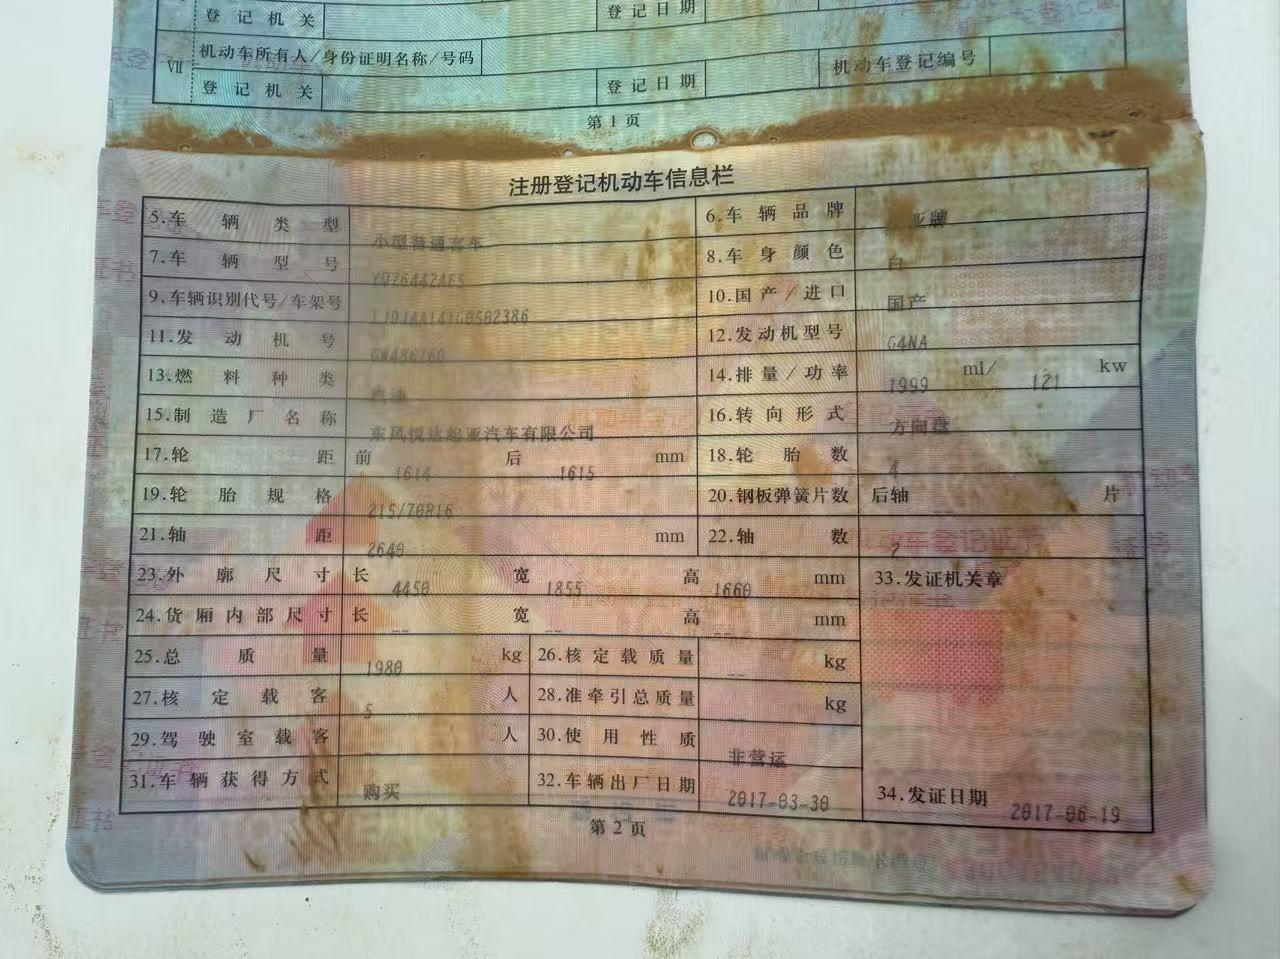 登记机关 登记日期
Ⅶ 机动车所有人/身份证明名称/号码 机动车登记编号
登记机关 登记日期
第1页
注册登记机动车信息栏
5.车辆类型 小型普通客车 6.车辆品牌 亚牌
7.车辆型号 YQZ6442AE5 8.车身颜色 白
9.车辆识别代号/车架号 10.国产/进口 国产
11.发动机号 12.发动机型号 G4NA
13.燃料种类 汽油 14.排量/功率 1999 ml/ 121 kw
15.制造厂名称 东风悦达起亚汽车有限公司 16.转向形式 方向盘
17.轮距 前 1614 后 1615 mm 18.轮胎数 4
19.轮胎规格 215/70R16 20.钢板弹簧片数 后轴 片
21.轴距 2640 mm 22.轴数 2
23.外廓尺寸 长 4450 宽 1855 高 1660 mm 33.发证机关章
24.货厢内部尺寸 长 -- 宽 -- 高 -- mm
25.总质量 1980 kg 26.核定载质量 -- kg
27.核定载客 5 人 28.准牵引总质量 -- kg
29.驾驶室载客 -- 人 30.使用性质 非营运
31.车辆获得方式 购买 32.车辆出厂日期 2017-03-30 34.发证日期 2017-06-19
第2页